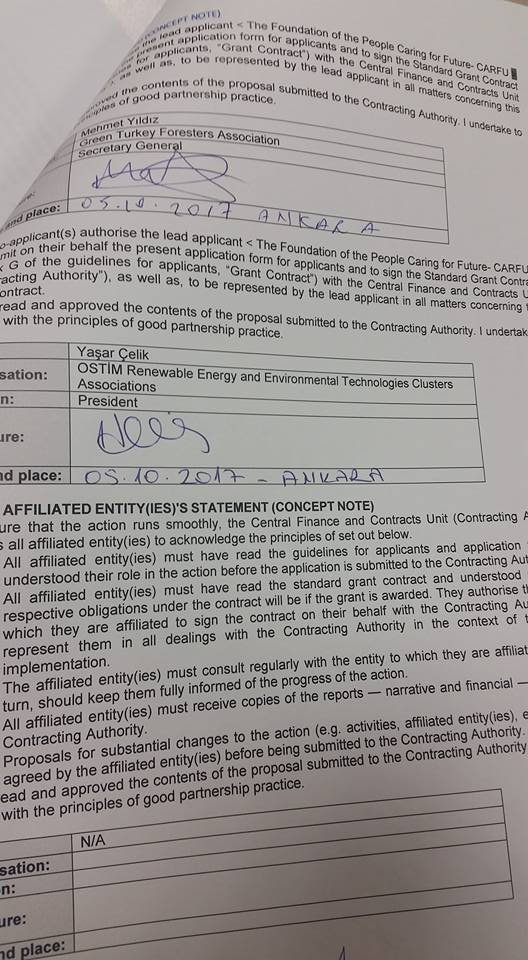 (CONCEPT NOTE)
the lead applicant < The Foundation of the People Caring for Future- CARFU
present application form for applicants and to sign the Standard Grant Contract
for applicants, “Grant Contract”) with the Central Finance and Contracts Unit
as well as, to be represented by the lead applicant in all matters concerning this
oved the contents of the proposal submitted to the Contracting Authority. I undertake to
ciples of good partnership practice.
Mehmet Yıldız
Green Turkey Foresters Association
Secretary General
ure:
and place: 05.10.2017 ANKARA
o-applicant(s) authorise the lead applicant < The Foundation of the People Caring for Future- CARFU
mit on their behalf the present application form for applicants and to sign the Standard Grant Contra
x G of the guidelines for applicants, “Grant Contract”) with the Central Finance and Contracts U
acting Authority”), as well as, to be represented by the lead applicant in all matters concerning t
ontract.
read and approved the contents of the proposal submitted to the Contracting Authority. I undertak
with the principles of good partnership practice.
Yaşar Çelik
sation: OSTİM Renewable Energy and Environmental Technologies Clusters
Associations
n: President
ure:
nd place: 05.10.2017 - ANKARA
AFFILIATED ENTITY(IES)'S STATEMENT (CONCEPT NOTE)
ure that the action runs smoothly, the Central Finance and Contracts Unit (Contracting A
s all affiliated entity(ies) to acknowledge the principles of set out below.
All affiliated entity(ies) must have read the guidelines for applicants and application
understood their role in the action before the application is submitted to the Contracting Aut
All affiliated entity(ies) must have read the standard grant contract and understood
respective obligations under the contract will be if the grant is awarded. They authorise th
which they are affiliated to sign the contract on their behalf with the Contracting Au
represent them in all dealings with the Contracting Authority in the context of t
implementation.
The affiliated entity(ies) must consult regularly with the entity to which they are affiliat
turn, should keep them fully informed of the progress of the action.
All affiliated entity(ies) must receive copies of the reports — narrative and financial —
Contracting Authority.
Proposals for substantial changes to the action (e.g. activities, affiliated entity(ies), e
agreed by the affiliated entity(ies) before being submitted to the Contracting Authority.
ead and approved the contents of the proposal submitted to the Contracting Authority
with the principles of good partnership practice.
N/A
sation:
n:
ure:
nd place: